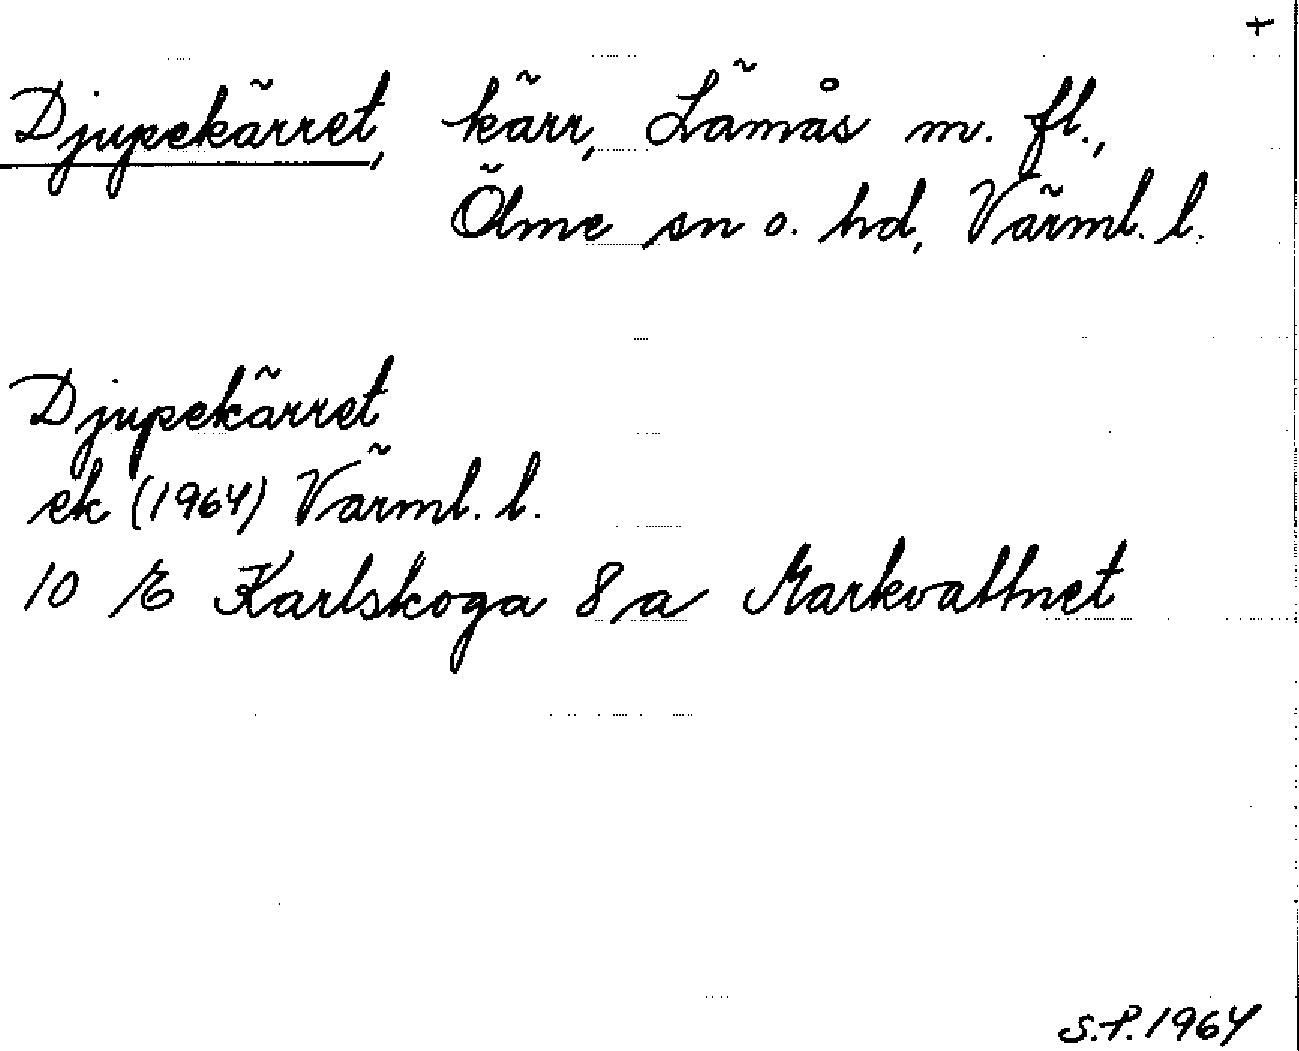 +
Djupekärret, kärr, Lämås m. fl.,
Ölme sn o. hd, Värml. l.
Djupekärret
ek (1964) Värml. l.
10 E Karlskoga 8 a Markvattnet
S.P. 1964